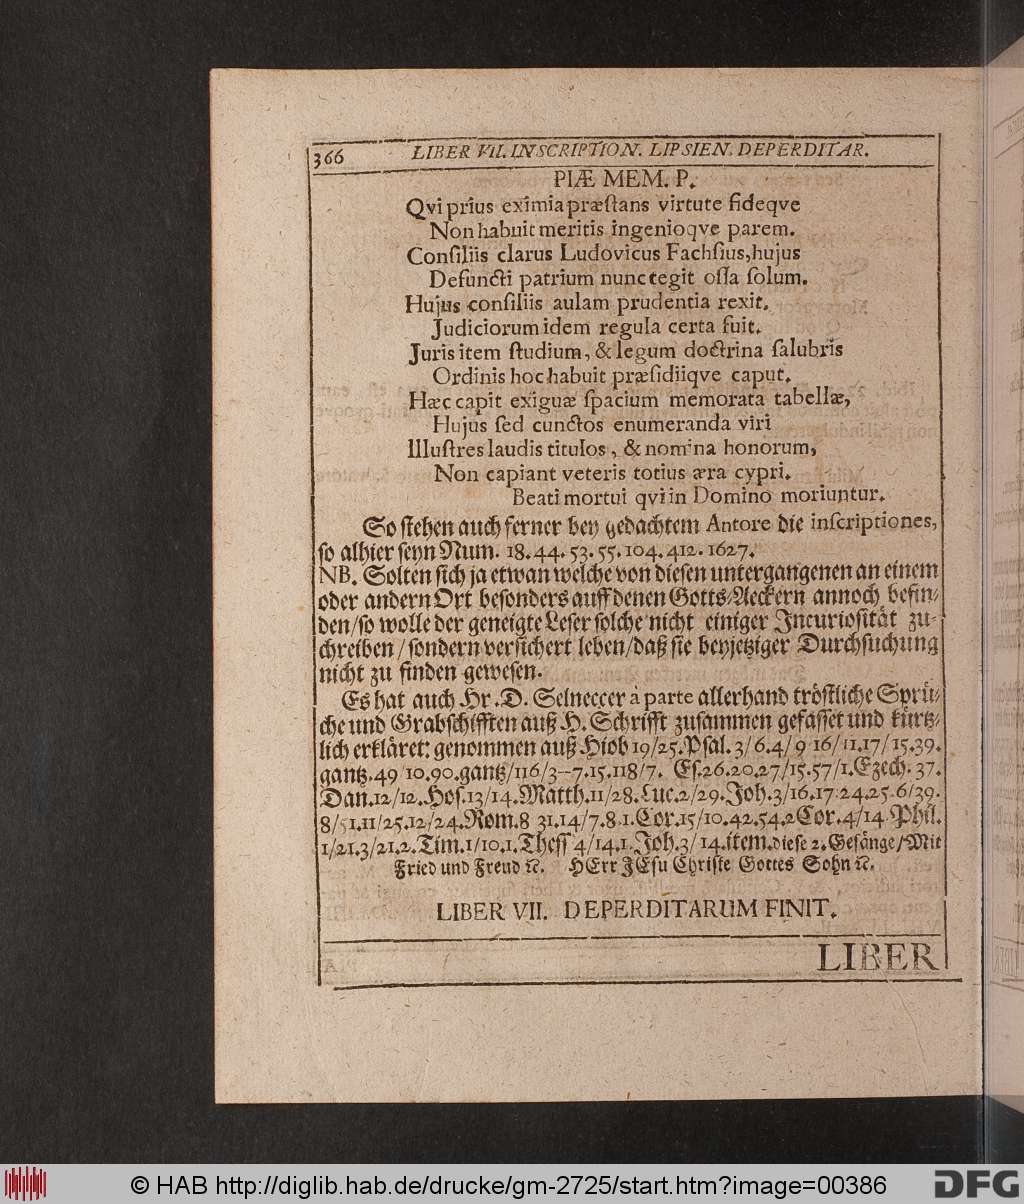 366 LIBER VII. INSCRIPTION. LIPSIEN. DEPERDITAR.
PIÆ MEM. P.
Qvi prius eximia præſtans virtute fideqve
Non habuit meritis ingenioqve parem.
Conſiliis clarus Ludovicus Fachſius, hujus
Defuncti patrium nunc tegit oſſa ſolum.
Hujus conſiliis aulam prudentia rexit.
Judiciorum idem regula certa fuit.
Juris item ſtudium, & legum doctrina ſalubris
Ordinis hoc habuit præſidiiqve caput.
Hæc capit exiguæ ſpacium memorata tabellæ,
Hujus ſed cunctos enumeranda viri
Illuſtres laudis titulos, & nomina honorum,
Non capiant veteris totius æra cypri.
Beati mortui qvi in Domino moriuntur.
So ſtehen auch ferner bey gedachtem Antore die inſcriptiones,
ſo alhier ſeyn Num. 18. 44. 53. 55. 104. 412. 1627.
NB. Solten ſich ja etwan welche von dieſen untergangenen an einem
oder andern Ort beſonders auff denen Gotts-Aeckern annoch befin-
den/ ſo wolle der geneigte Leſer ſolche nicht einiger Incurioſität zu-
chreiben/ ſondern verſichert leben/ daß ſie bey jetziger Durchſuchung
nicht zu finden geweſen.
Es hat auch Hr. D. Selneccer à parte allerhand tröſtliche Sprü-
che und Grabſchifften auß H. Schrifft zuſammen gefaſſet und kürtz-
lich erkläret: genommen auß Hiob 19/25. Pſal. 3/6. 4/9 16/11. 17/15. 39.
gantz. 49/10. 90. gantz/ 116/3--7. 15. 118/7. Eſ. 26. 20. 27/15. 57/1. Ezech. 37.
Dan. 12/12. Hoſ. 13/14. Matth. 11/28. Luc. 2/29. Joh. 3/16. 17 24. 25. 6/39.
8/51. 11/25. 12/24. Rom. 8 31. 14/7. 8 1. Cor. 15/10. 42. 54. 2 Cor. 4/14 Phil.
1/21. 3/21. 2. Tim. 1/10. 1. Theſſ 4/14. 1. Joh. 3/14. item. dieſe 2. Geſänge/ Mit
Fried und Freud ꝛc. HErr JEſu Chriſte Gottes Sohn ꝛc.
LIBER VII. DEPERDITARUM FINIT.
LIBER
© HAB http://diglib.hab.de/drucke/gm-2725/start.htm?image=00386
DFG